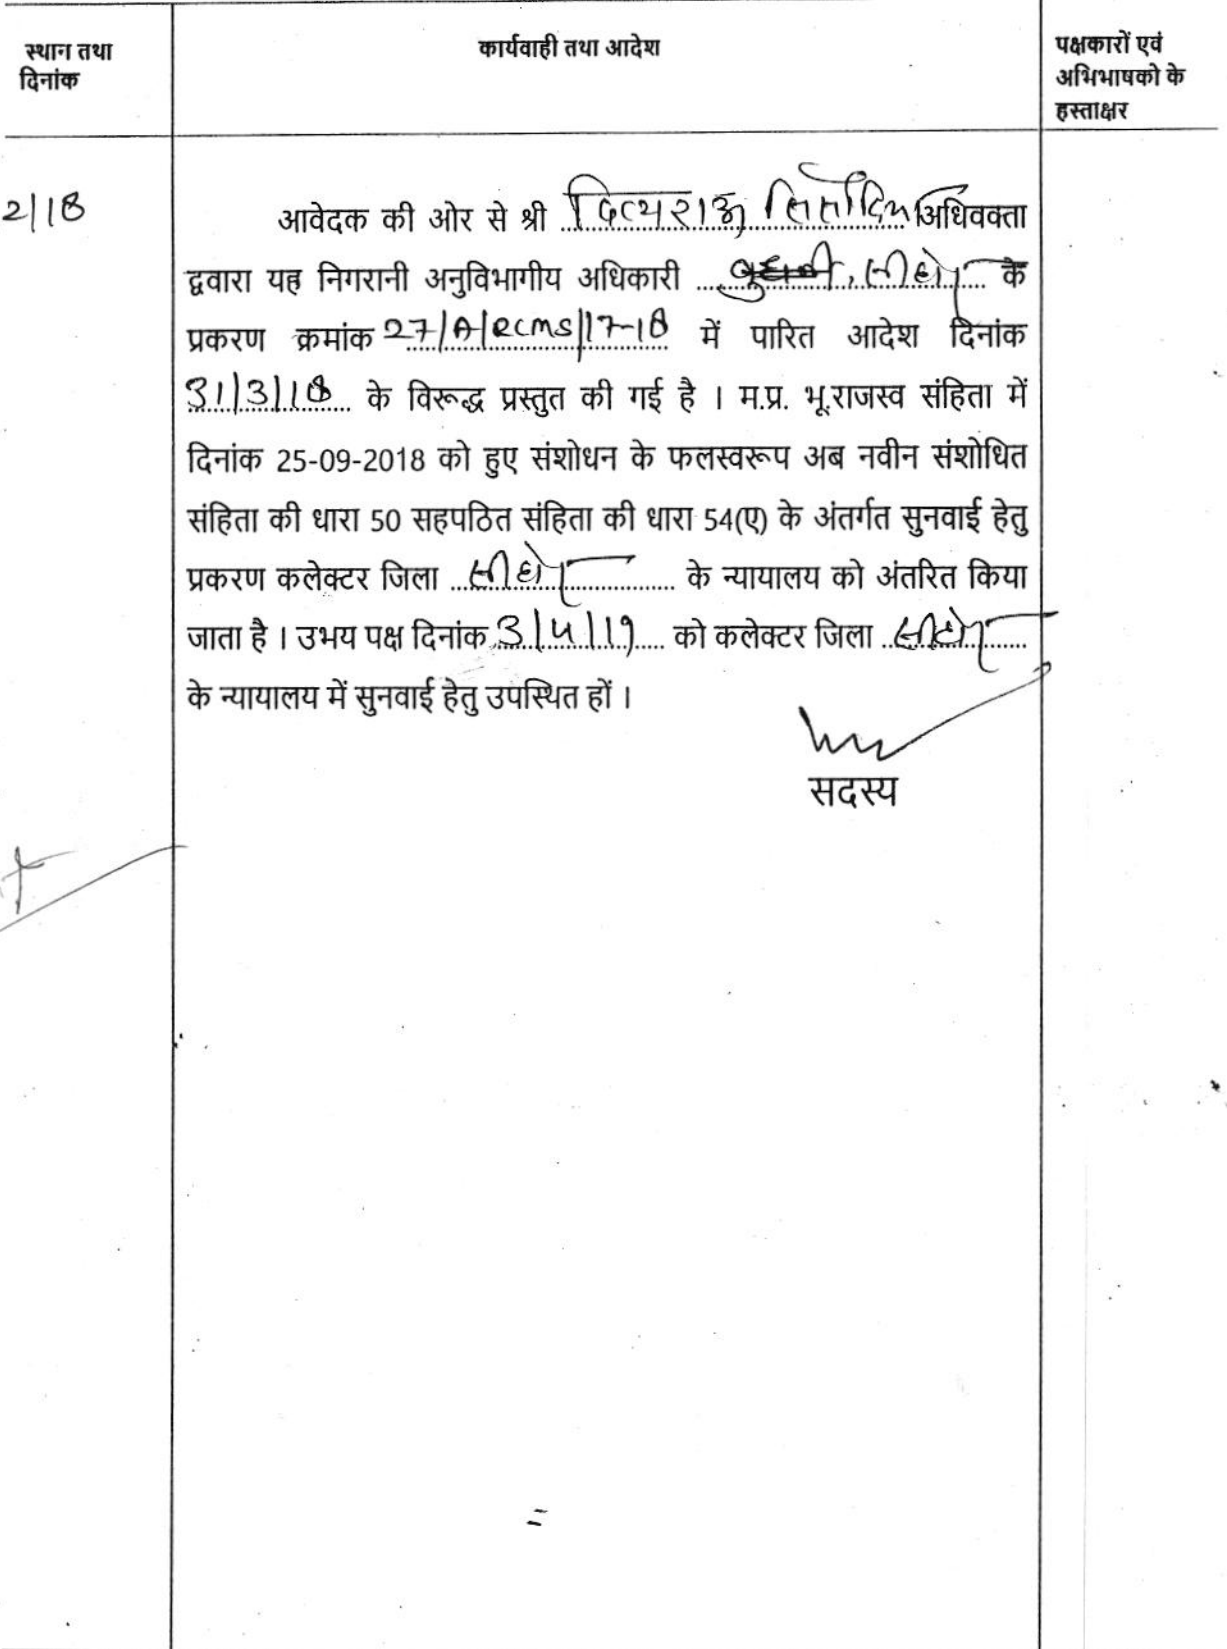 स्थान तथा
दिनांक
कार्यवाही तथा आदेश
पक्षकारों एवं
अभिभाषको के
हस्ताक्षर
2/18
आवेदक की ओर से श्री दिव्यराज सिसोदिया अधिवक्ता
द्ववारा यह निगरानी अनुविभागीय अधिकारी बुधनी, सीहोर के
प्रकरण क्रमांक 27/A/RCMS/17-18 में पारित आदेश दिनांक
31/3/18 के विरूद्ध प्रस्तुत की गई है । म.प्र. भू.राजस्व संहिता में
दिनांक 25-09-2018 को हुए संशोधन के फलस्वरूप अब नवीन संशोधित
संहिता की धारा 50 सहपठित संहिता की धारा 54(ए) के अंतर्गत सुनवाई हेतु
प्रकरण कलेक्टर जिला सीहोर के न्यायालय को अंतरित किया
जाता है । उभय पक्ष दिनांक 3/4/19 को कलेक्टर जिला सीहोर
के न्यायालय में सुनवाई हेतु उपस्थित हों ।
सदस्य